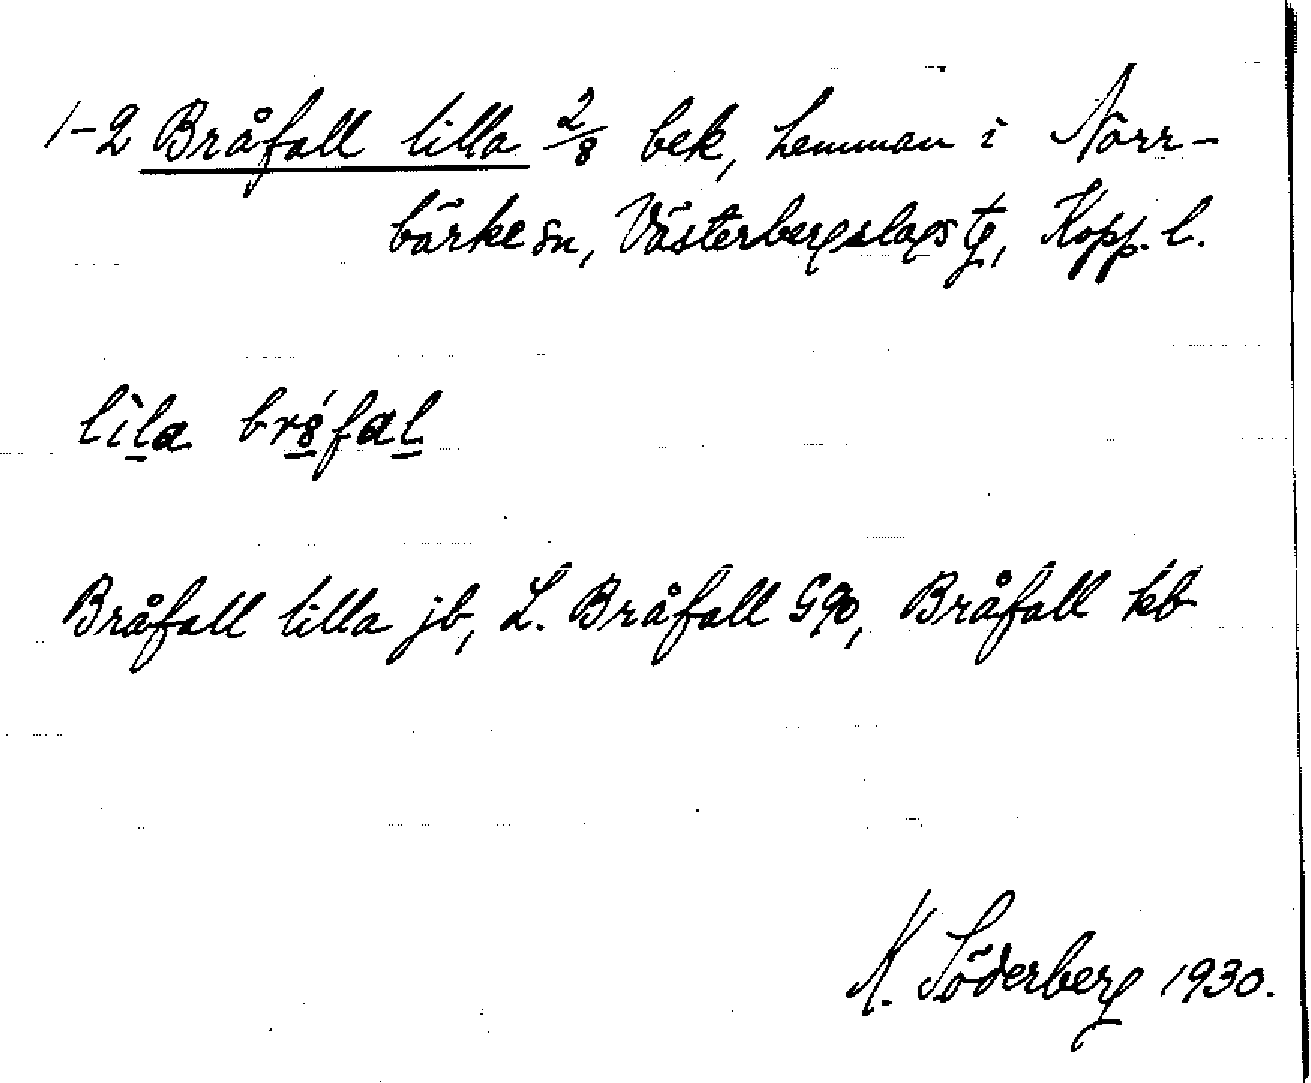 1-2 Bråfall lilla 2/8 bek, hemman i Norr-
bärke sn, Västerbergslags tg, Kopp. l.
lìla bró̱fal
Bråfall lilla jb, L. Bråfall G90, Bråfall kb
K. Söderberg 1930.